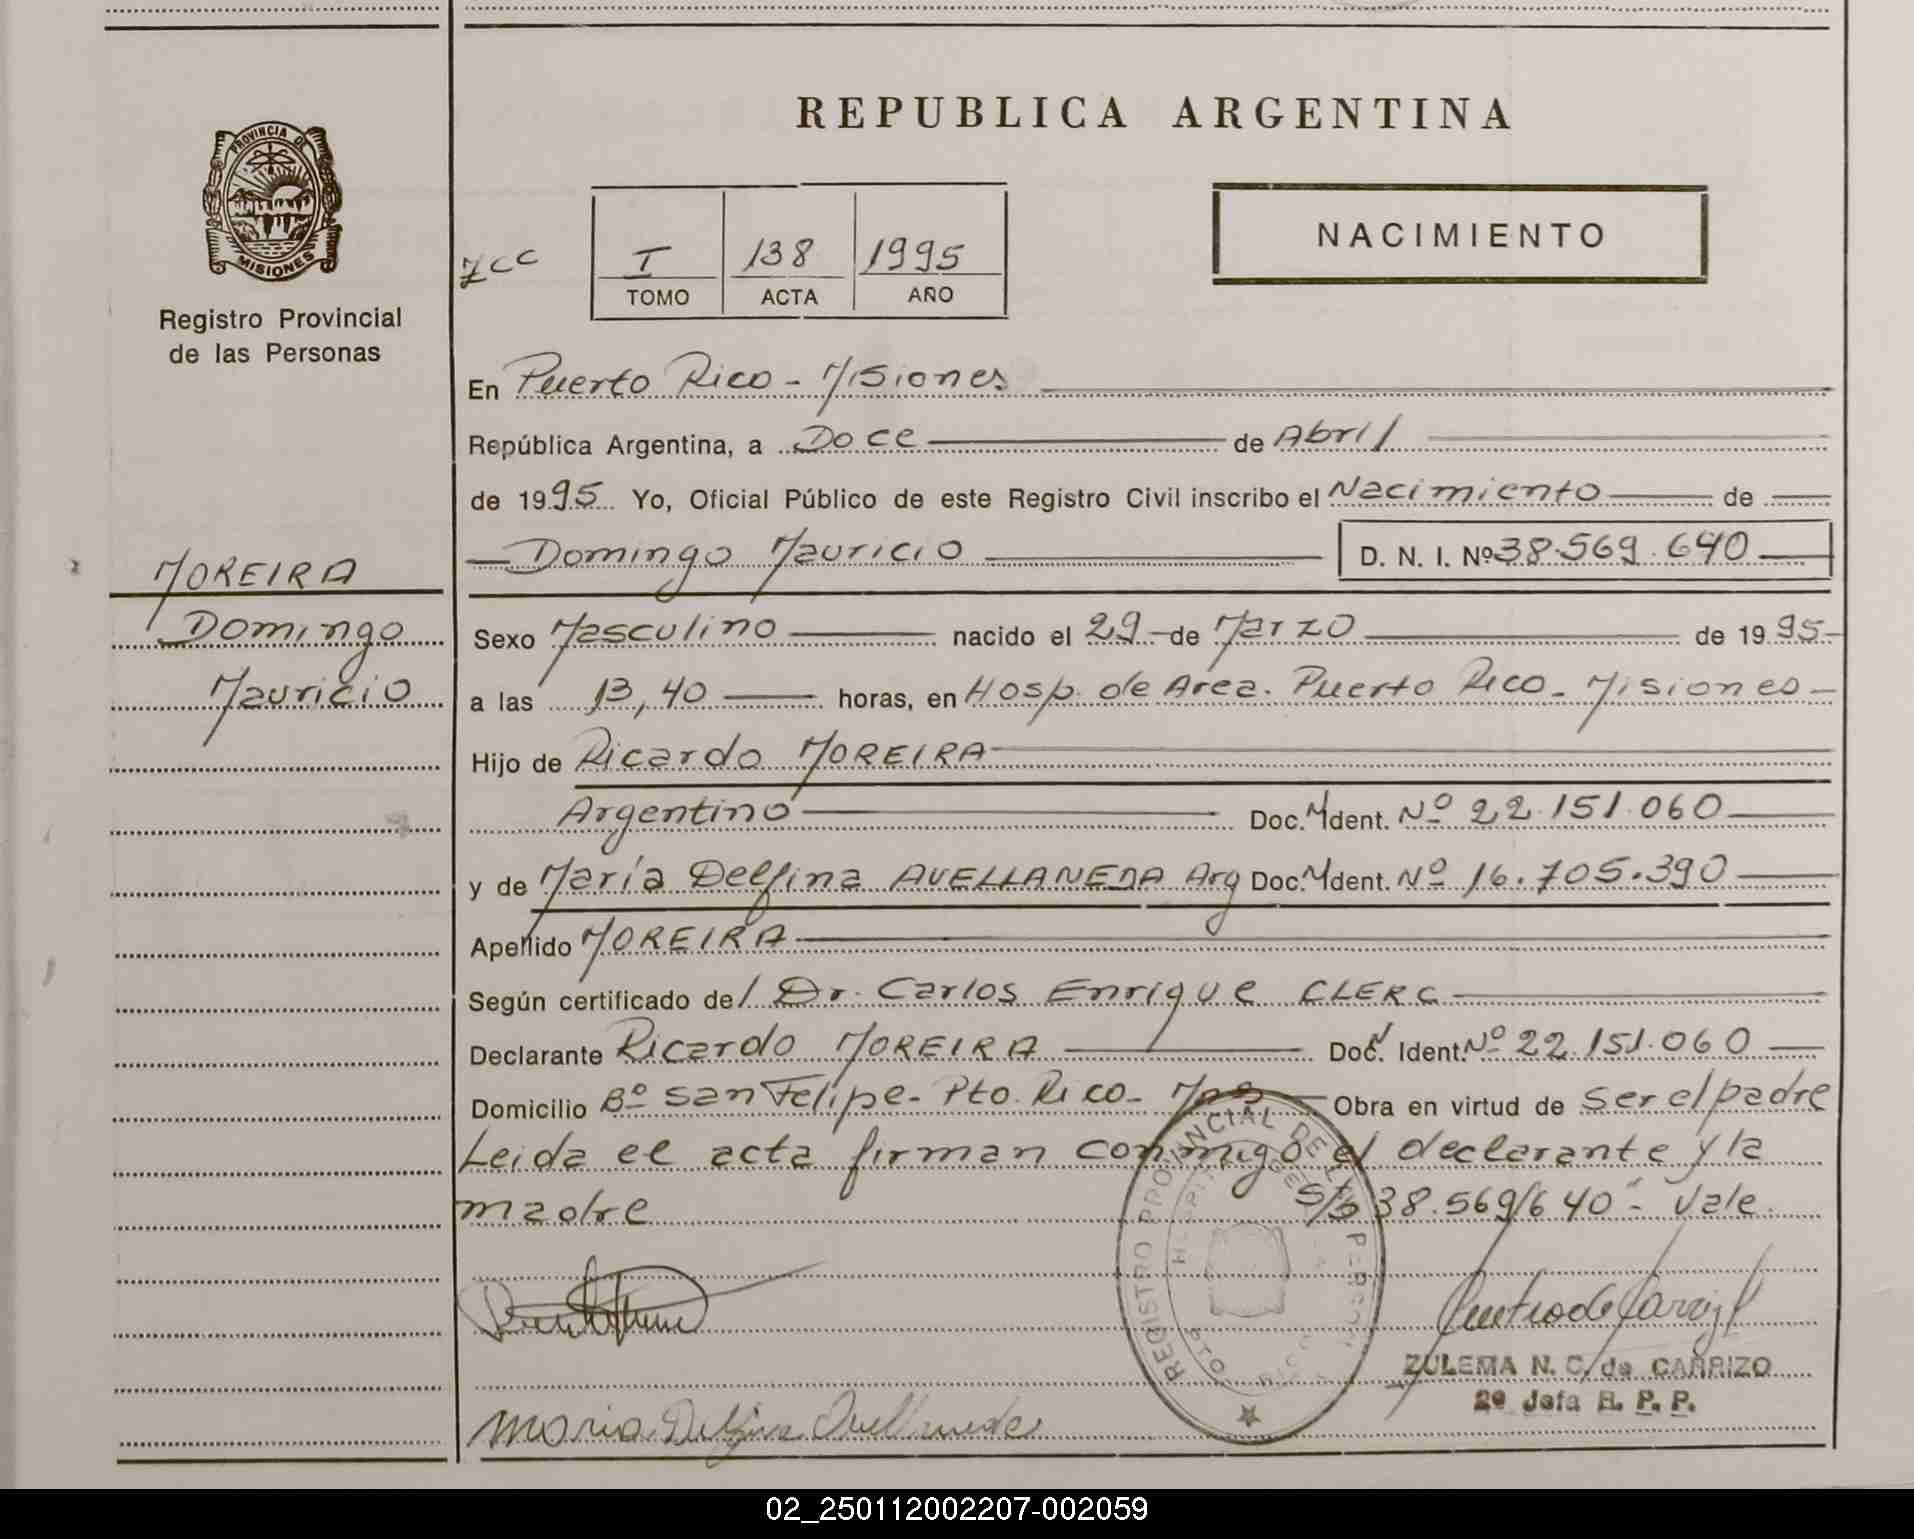 REPUBLICA ARGENTINA
PROVINCIA DE
MISIONES
Registro Provincial
de las Personas
NACIMIENTO
I 138 1995
TOMO ACTA AÑO
En Puerto Rico - Misiones
República Argentina, a Doce de Abril
de 1995 Yo, Oficial Público de este Registro Civil inscribo el Nacimiento de
Domingo Mauricio D. N. I. Nº 38.569.640
MOREIRA
Domingo
Mauricio
Sexo Masculino nacido el 29 de Marzo de 1995
a las 13,40 horas, en Hosp. de Area. Puerto Rico - Misiones
Hijo de Ricardo MOREIRA
Argentino Doc. Ident. Nº 22.151.060
y de María Delfina AVELLANEDA Arg Doc. Ident. Nº 16.705.390
Apellido MOREIRA
Según certificado del Dr. Carlos Enrique CLERC
Declarante Ricardo MOREIRA Doc. Ident. Nº 22.151.060
Domicilio Bº San Felipe - Pto. Rico - Mnes Obra en virtud de ser el padre
Leida el acta firman conmigo el declarante y la
madre S/S 38.569/640 - Vale
REGISTRO PROVINCIAL DE LAS PERSONAS
ZULEMA N. C. de CARRIZO
2º Jefa R. P. P.
Maria Delfina Avellaneda
02_250112002207-002059